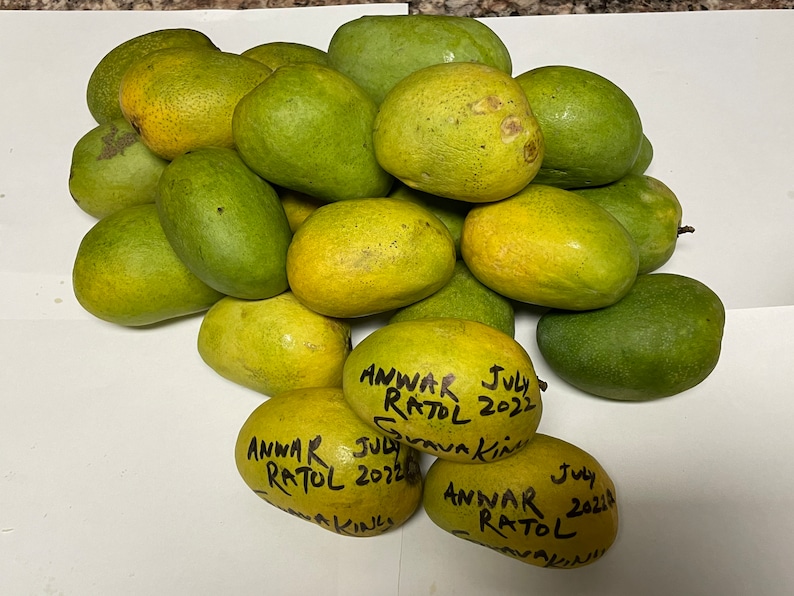 ANWAR JULY
RATOL 2022
GUAVAKIN
ANWAR JULY
RATOL 2022
GUAVAKIN
ANWAR JULY
RATOL 2022
GUAVAKIN